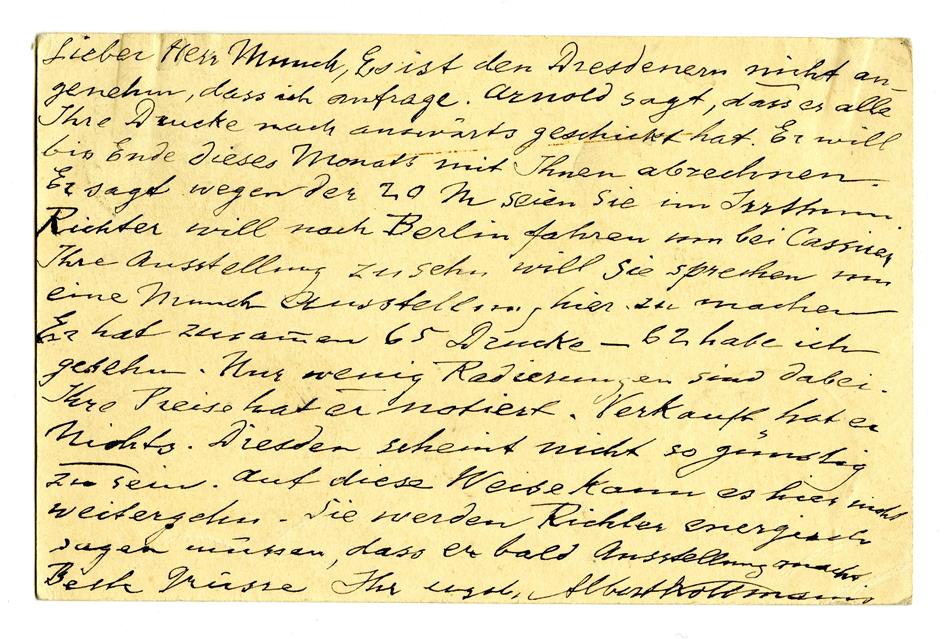 Lieber Herr Munch, Es ist den Dresdenern nicht an-
genehm, dass ich anfrage. Arnold sagt, dass er alle
Ihre Drucke nach auswärts geschickt hat. Er will
bis Ende dieses Monats mit Ihnen abrechnen.
Er sagt wegen der 20 M seien Sie im Irrthum
Richter will nach Berlin fahren um bei Cassirer
Ihre Ausstellung zu sehn will Sie sprechen um
eine Munch Ausstellung hier zu machen
Er hat zusam̄en 65 Drucke – 62 habe ich
gesehn. Nur wenig Radierungen sind dabei.
Ihre Preise hat er notiert. Verkauft hat er
Nichts. Dresden scheint nicht so günstig
zu sein. Auf diese Weise kann es hier nicht
weitergehn. Sie werden Richter energisch
sagen müssen, dass er bald Ausstellung macht.
Beste Grüsse Ihr ergb. Albert Kollmann